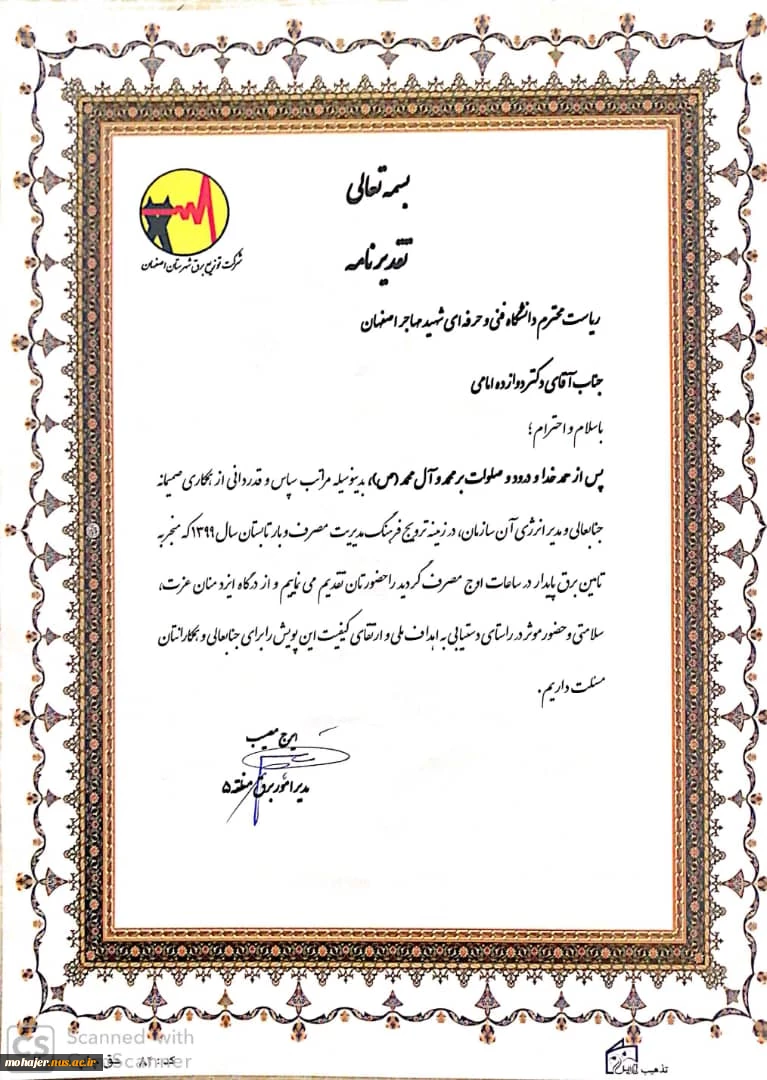 بسمه تعالی
شرکت توزیع برق شهرستان اصفهان
تقدیرنامه
ریاست محترم دانشگاه فنی و حرفه ای شهید مهاجر اصفهان
جناب آقای دکتر دوازده امامی
باسلام و احترام؛
پس از حمد خدا و درود و صلوات بر محمد و آل محمد (ص)، بدینوسیله مراتب سپاس و قدردانی از همکاری صمیمانه
جنابعالی و مدیر انرژی آن سازمان، در زمینه ترویج فرهنگ مدیریت مصرف و بار تابستان سال ۱۳۹۹ که منجر به
تامین برق پایدار در ساعات اوج مصرف گردید را حضورتان تقدیم می نماییم و از درگاه ایزد منان عزت،
سلامتی و حضور موثر در راستای دستیابی به اهداف ملی و ارتقای کیفیت این پویش را برای جنابعالی و همکارانتان
مسئلت داریم.
ایرج معیب
مدیر امور برق منطقه ۵
CS Scanned with
CamScanner
mohajer.nus.ac.ir
تذهیب